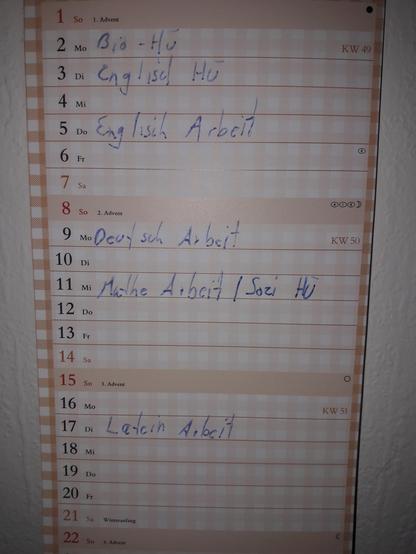 1 So 1. Advent
2 Mo Bio-HÜ KW 49
3 Di Englisch HÜ
4 Mi
5 Do Englisch Arbeit
6 Fr
7 Sa
8 So 2. Advent
9 Mo Deutsch Arbeit KW 50
10 Di
11 Mi Mathe Arbeit / Sozi HÜ
12 Do
13 Fr
14 Sa
15 So 3. Advent
16 Mo KW 51
17 Di Latein Arbeit
18 Mi
19 Do
20 Fr
21 Sa Winteranfang
22 So 4. Advent